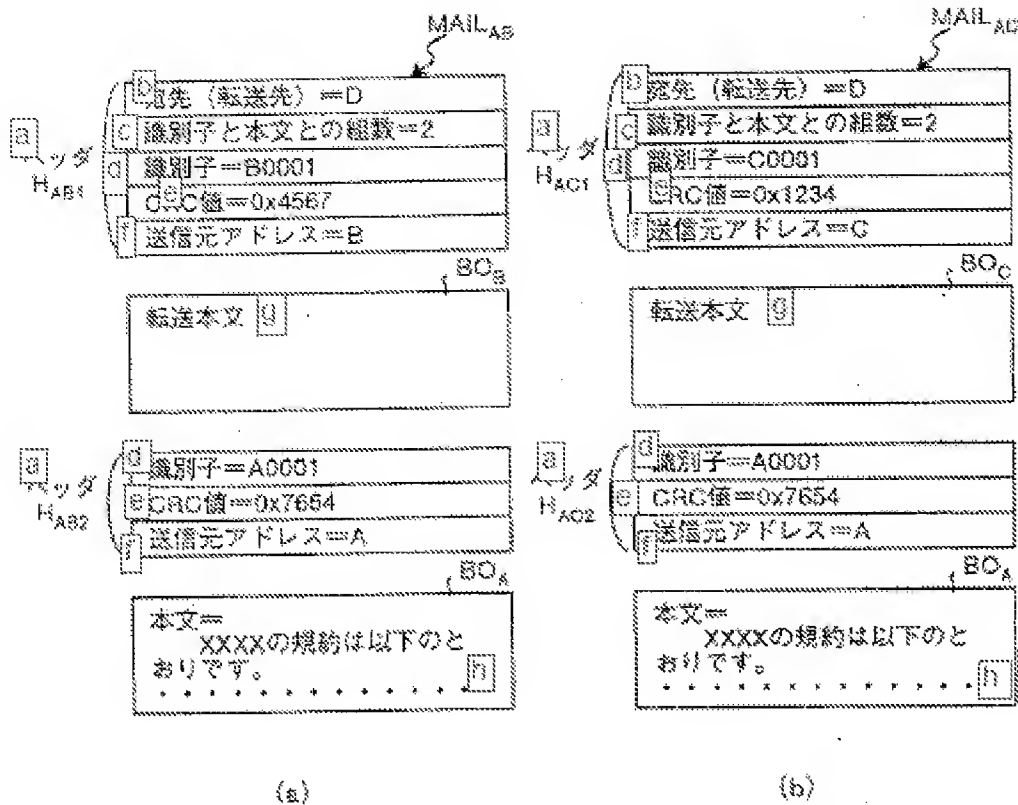 MAIL_AB
b
宛先（転送先）＝D
a
ヘッダ
H_AB1
c 識別子と本文との組数＝2
d 識別子＝B0001
e
CRC値＝0x4567
f 送信元アドレス＝B
BO_B
転送本文 g
a
ヘッダ
H_AB2
d
識別子＝A0001
e CRC値＝0x7654
f 送信元アドレス＝A
BO_A
本文＝
XXXXの規約は以下のと
おりです。
h
(a)
MAIL_AC
b
宛先（転送先）＝D
a
ヘッダ
H_AC1
c 識別子と本文との組数＝2
d 識別子＝C0001
e
CRC値＝0x1234
f 送信元アドレス＝C
BO_C
転送本文 g
a
ヘッダ
H_AC2
d
識別子＝A0001
e CRC値＝0x7654
f 送信元アドレス＝A
BO_A
本文＝
XXXXの規約は以下のと
おりです。
h
(b)